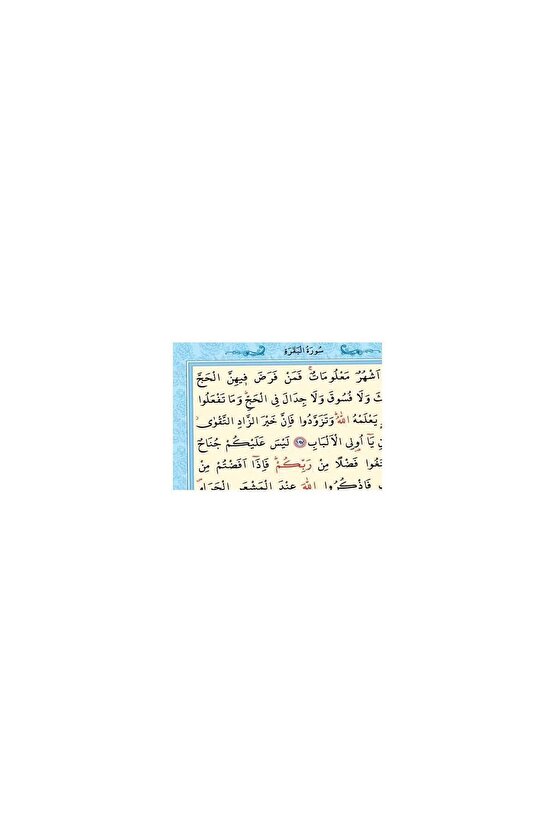 سُورَةُ الْبَقَرَةِ
اَشْهُرٌ مَعْلُومَاتٌۚ فَمَنْ فَرَضَ فٖيهِنَّ الْحَجَّ
وَلَا فُسُوقَ وَلَا جِدَالَ فِي الْحَجِّۜ وَمَا تَفْعَلُوا
يَعْلَمْهُ اللّٰهُۜ وَتَزَوَّدُوا فَاِنَّ خَيْرَ الزَّادِ التَّقْوٰىۘ
يَٓا اُو۬لِي الْاَلْبَابِ ﴿١٩٧﴾ لَيْسَ عَلَيْكُمْ جُنَاحٌ
فَضْلًا مِنْ رَبِّكُمْۜ فَاِذَٓا اَفَضْتُمْ مِنْ
فَاذْكُرُوا اللّٰهَ عِنْدَ الْمَشْعَرِ الْحَرَامِۖ